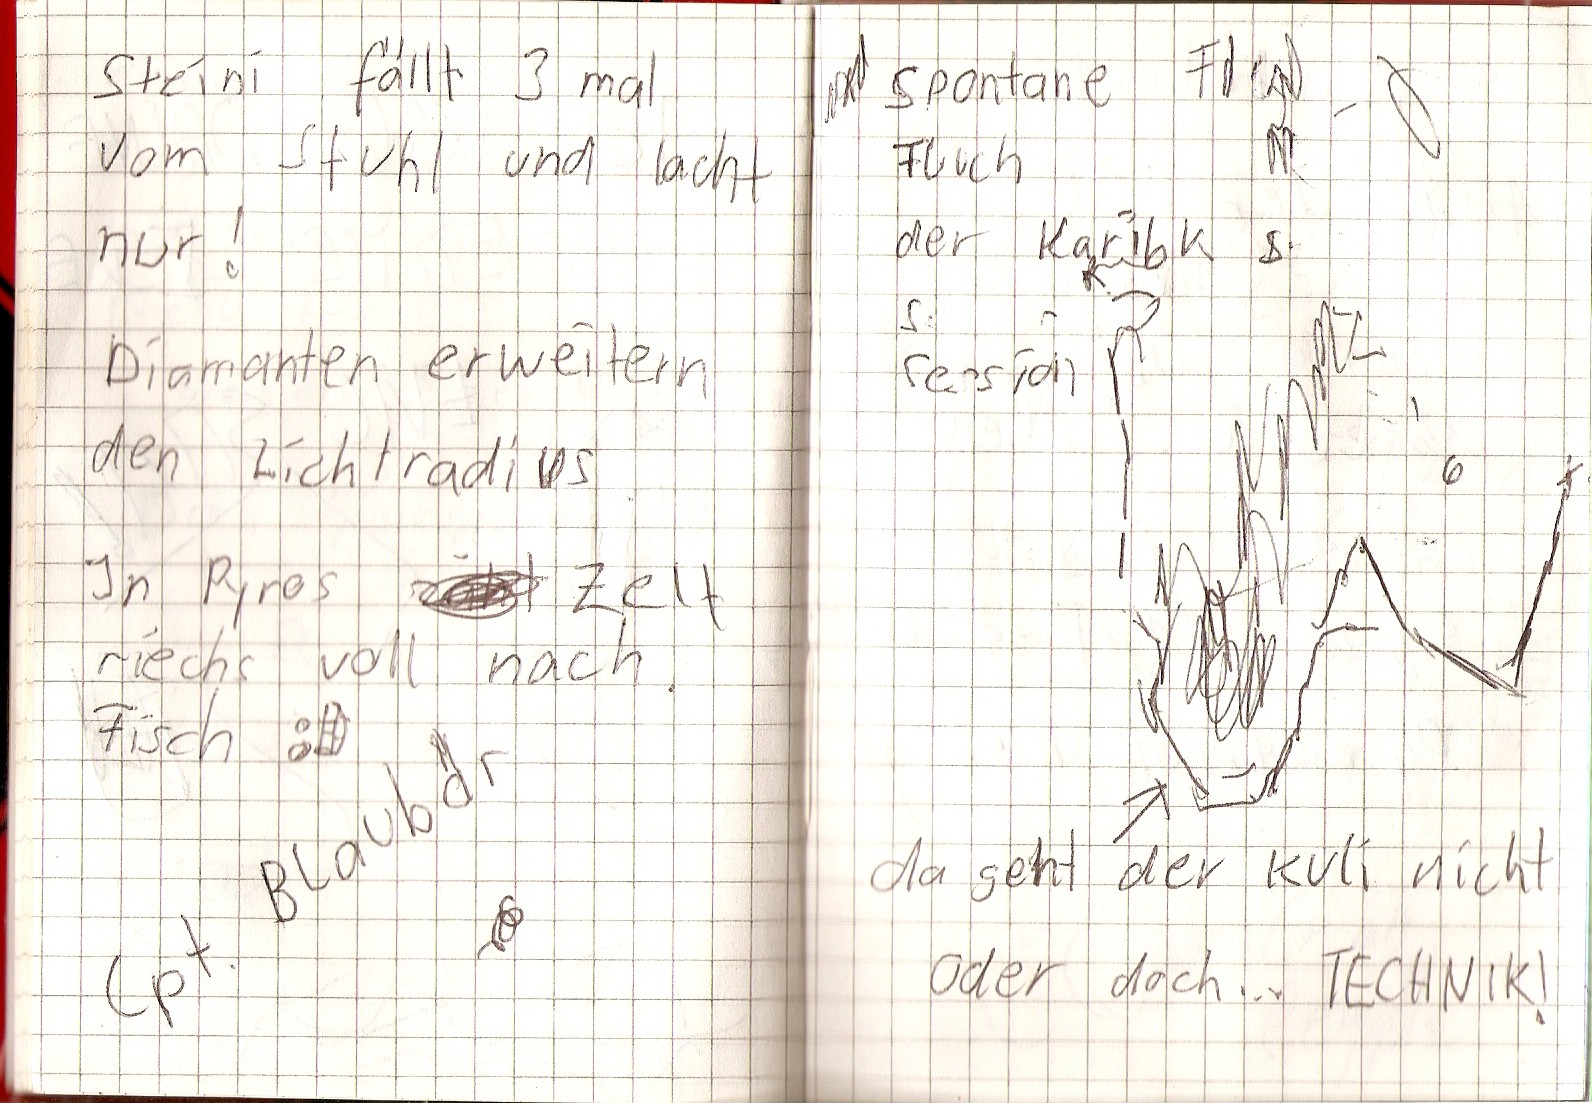 Steini fällt 3 mal
vom Stuhl und lacht
nur!
Diamanten erweitern
den Lichtradius
In Pyros Zelt
riechs voll nach
Fisch :D
Cpt. Blaubär
spontane
Fluch
der Karibk s.
s.
session
da geht der Kuli nicht
oder doch... TECHNIK!